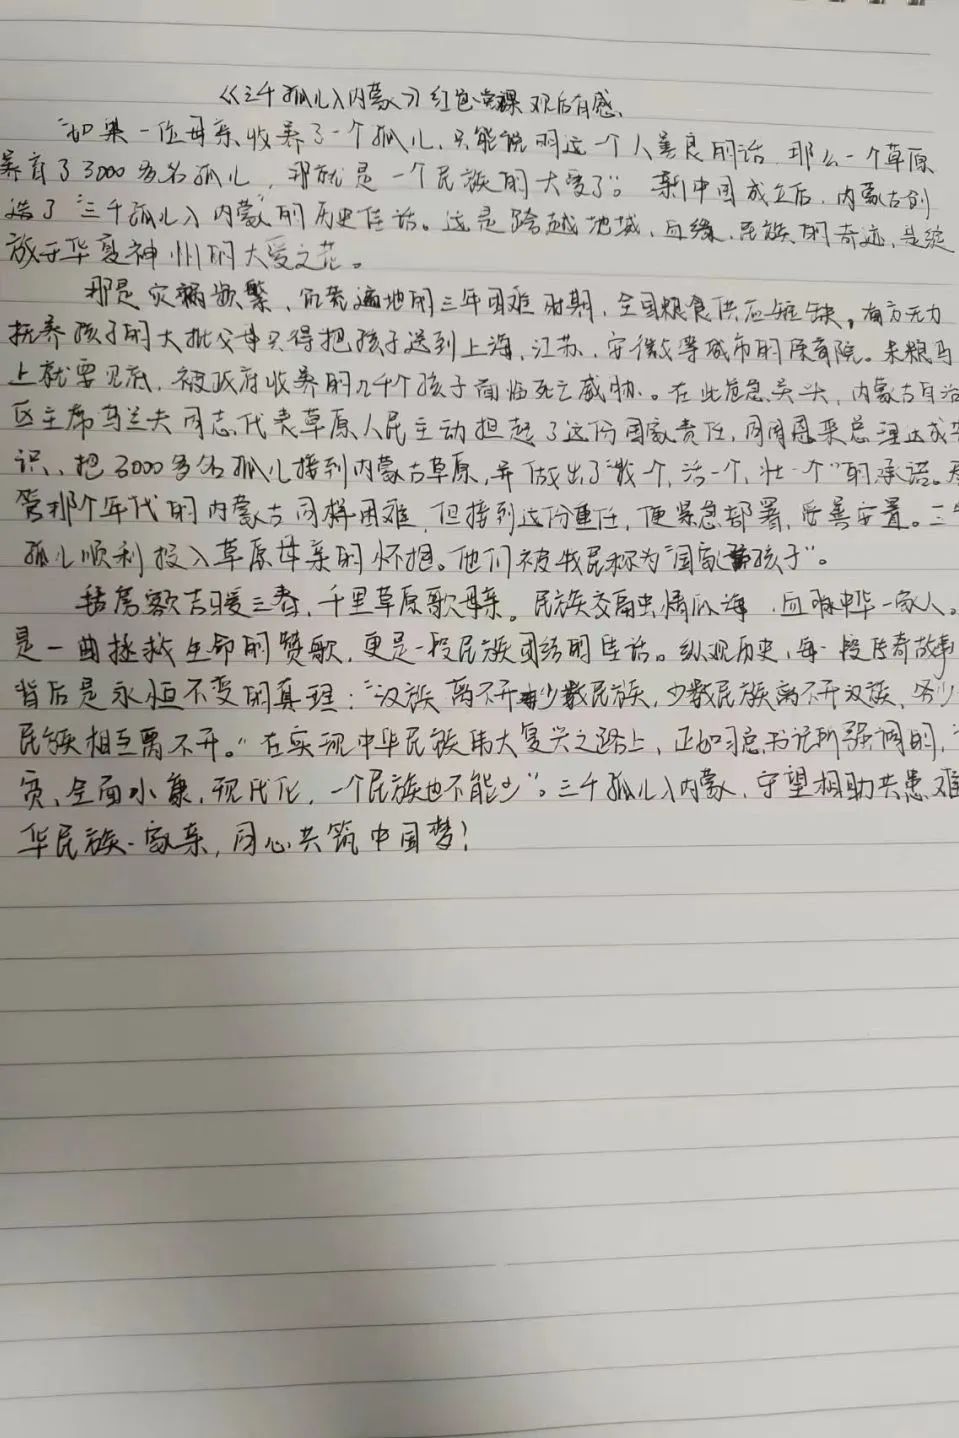 《三千孤儿入内蒙》红色党课观后有感
“如果一位母亲收养了一个孤儿,只能说明这一个人善良的话,那么一个草原
养育了3000多名孤儿,那就是一个民族的大爱了”。新中国成立后,内蒙古创
造了“三千孤儿入内蒙”的历史佳话。这是跨越地域、血缘、民族的奇迹,是绽
放于华夏神州的大爱之花。
那是灾祸频繁、饥荒遍地的三年困难时期,全国粮食供应短缺,有方无力
抚养孩子的大批父母只得把孩子送到上海,江苏、安徽等城市的保育院。未粮马
上就要见底,被政府收养的几千个孩子面临死亡威胁。在此危急关头,内蒙古自治
区主席乌兰夫同志代表草原人民主动担起了这份国家责任,同周恩来总理达成共
识、把3000多名孤儿接到内蒙古草原,并做出了“救一个,活一个,壮一个”的承诺。尽
管那个年代的内蒙古同样困难,但接到这份重任,便紧急部署,妥善安置。三千
孤儿顺利投入草原母亲的怀抱。他们被牧民称为“国家孩子”。
毡房 三春,千里草原歌母亲。民族交融 情似海,血脉中华一家人。
是一曲拯救生命的赞歌,更是一段民族团结的佳话。纵观历史,每一段传奇故事
背后是永恒不变的真理:“汉族离不开少数民族,少数民族离不开汉族,各少
民族相互离不开。”在实现中华民族伟大复兴之路上,正如习总书记所强调的,
贫、全面小康,现代化,一个民族也不能少”。三千孤儿入内蒙,守望相助共患难
华民族一家亲,同心共筑中国梦!